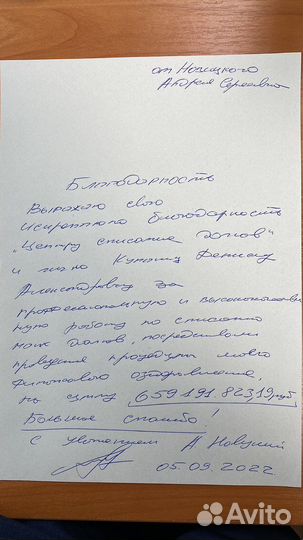 от Новицкого
Андрея Сергеевича
Благодарность
Выражаю свою
искреннюю благодарность
"Центру списания долгов"
и лично Денису
Александровичу за
профессиональную и
работу по списанию
моих долгов, посредством
проведения процедуры моего
финансового оздоровления,
на сумму 659 191.823,19 руб
Большое спасибо!
С уважением А Новицкий
05.09.2022
Avito